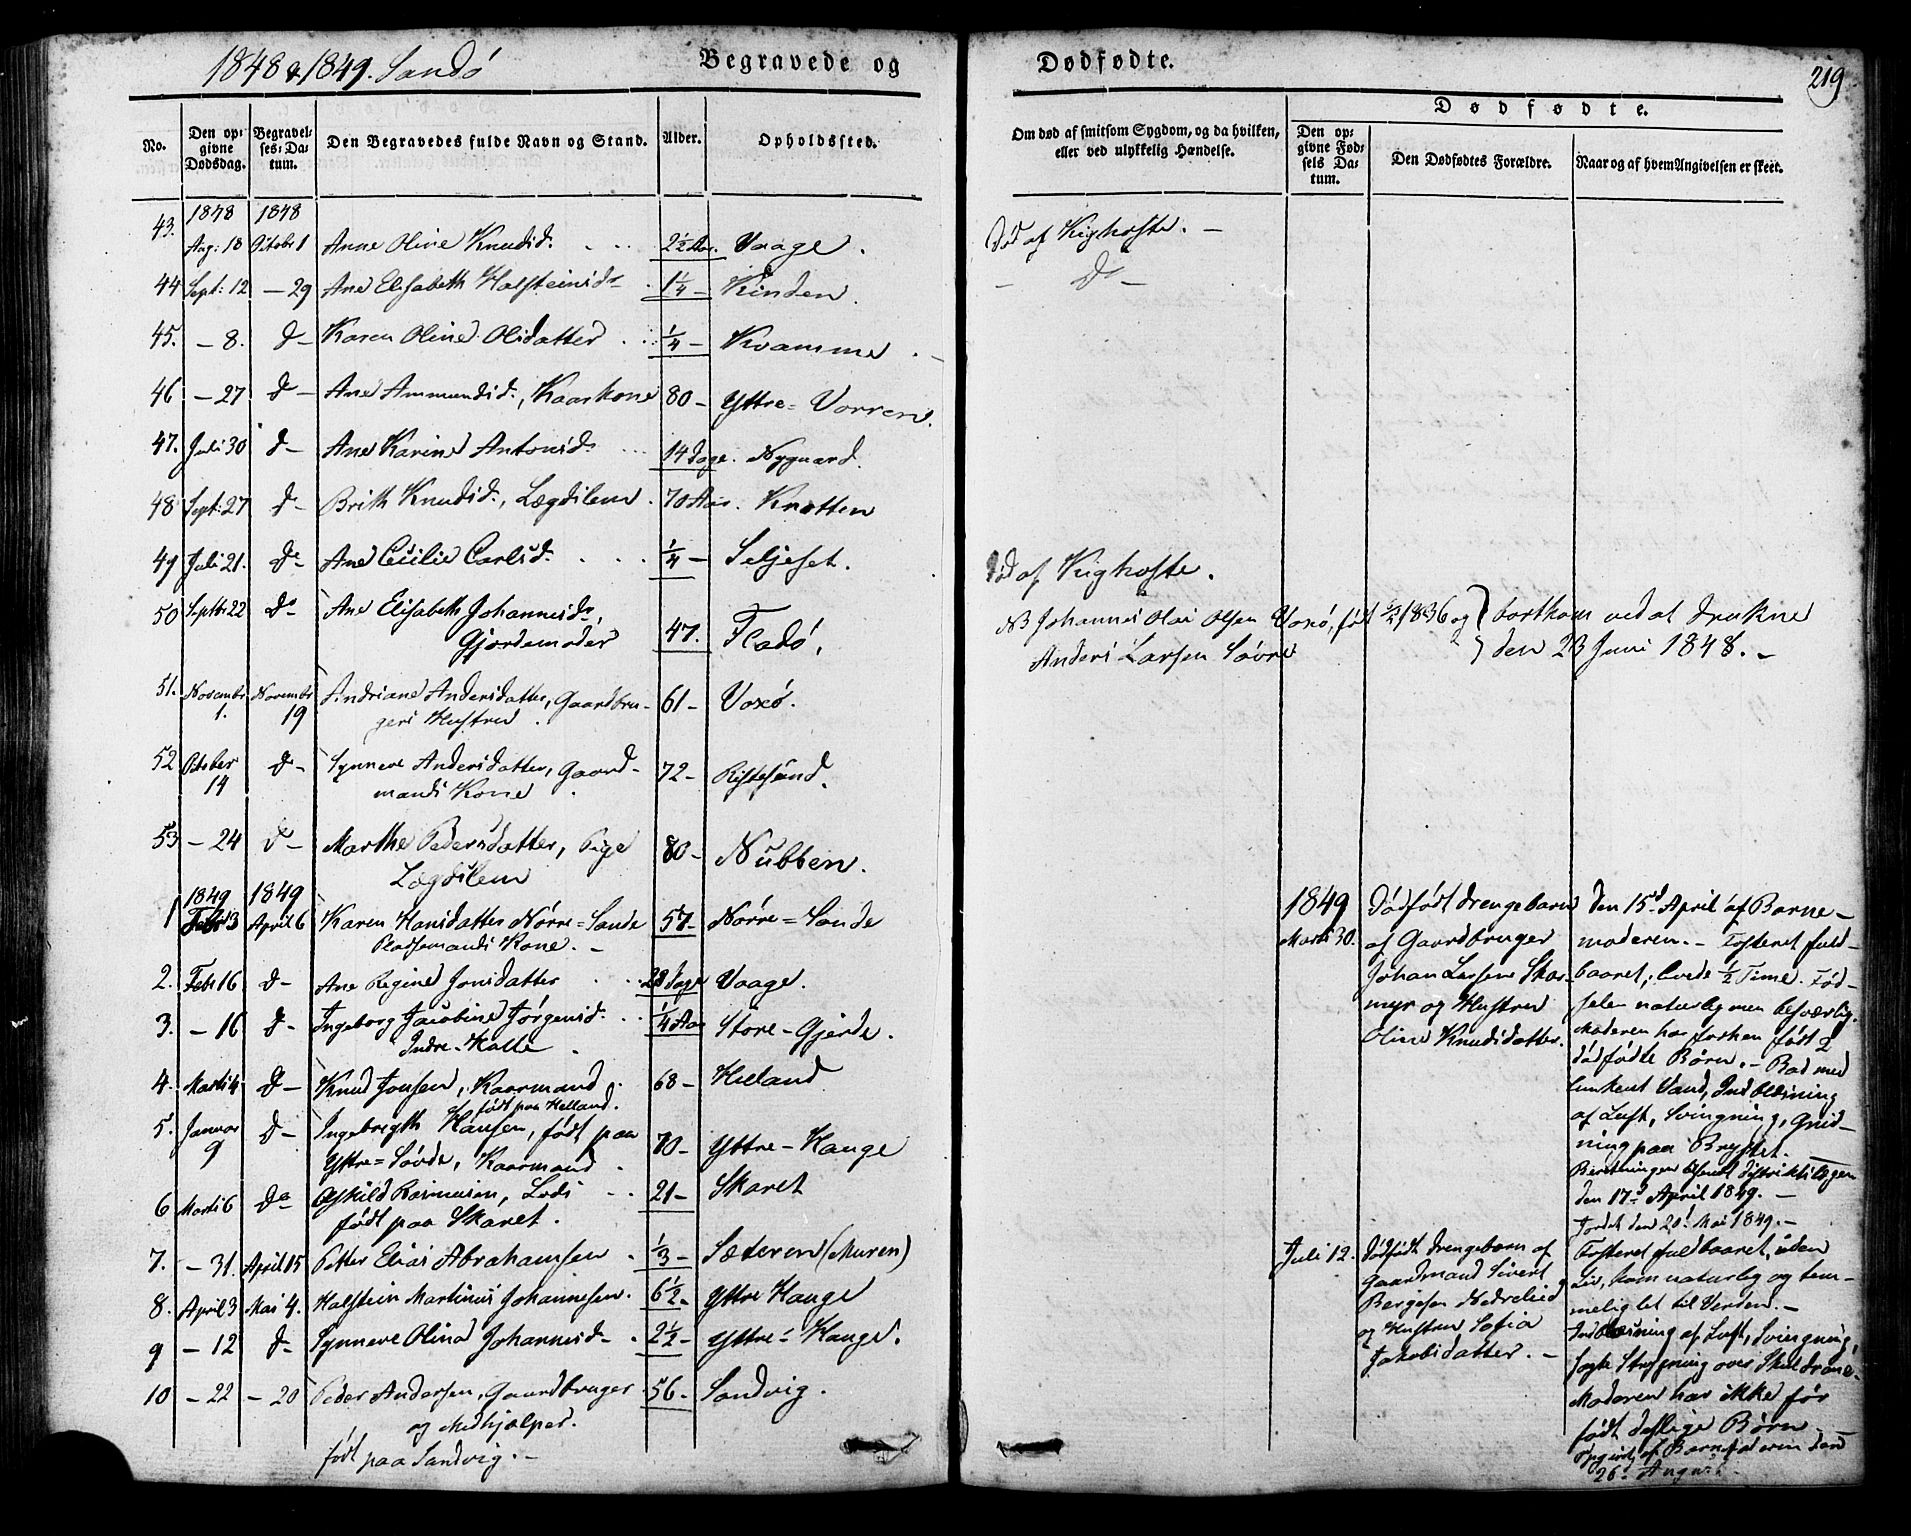 1848 & 1849. Sandø
Begravede og
Dødfødte.
219
No.
Den opgivne Dødsdag.
Begravelses-Datum.
Den Begravedes fulde Navn og Stand.
Alder.
Opholdssted.
Om død af smitsom Sygdom, og da hvilken, eller ved ulykkelig Hændelse.
Dødfødte.
Den opgivne Fødsels Datum.
Den Dødfødtes Forældre.
Naar og af hvem Angivelsen er skeet.
1848 1848
43. Aug: 18 Octobr 1 Anne Oline Knudsd. 2½ Aar. Vaage. Død af Kighoste. -
44 Sept: 12 - 29 Ane Elisabeth Halsteinsd. 1¼ - Kinden. - Do -
45. - 8. Do - Karen Oline Olsdatter ¼ - Kvamme. -
46 - 27 Do - Ane Ammundsd., Kaarkone 80 - Yttre= Vorren.
47. Juli 30 Do - Ane Karine Antonsd. 14 Dage. Nygaard.
48 Sept: 27 Do - Brith Knudsd., Lægdslem. 70 Aar. Knotten
49 Juli 21. Do - Ane Cecilie Carlsd. ¼ - Seljeset. Død af Kighoste.
50 Septbr 22 Do - Ane Elisabeth Johannesd.,
Gjordemoder 47. Fladø.
NB Johannes Olai Olsen Voxø, født 1836 og } bortkom ved at drukne
Anders Larsen Søvre } den 23 Juni 1848. -
51. Novembr 1. Novembr 19 Andriane Andersdatter, Gaardbru-
gers Hustru. 61 - Voxø.
52 October 14 Do - Synneve Andersdatter, Gaard-
mands Kone. 72 - Ristesund.
53 - 24 Do - Marthe Pedersdatter, Pige
Lægdslem 80 - Nubben.
1849 1849
1 Febr 3 April 6 Karen Hansdatter Nørre=Sande
Pladsemands Kone. - 57 - Nørre=Sande
2. Febr 16 Do - Ane Regine Jonsdatter 28 Dage Vaage.
3. - 16 Do - Ingeborg Jacobine Jørgensd.
Indre- ¼ Aar Store-Gjerde.
4. Marts 4 Do - Knud Jonsen, Kaarmand.
født paa Helland. 68 - Helland
5. Januar 9 Do - Ingebrigth Hansen, født paa
Yttre=Søvde, Kaarmand. 70 - Yttre-Hauge
6 Marts 6 Do Eskild Rasmusen, Lods
født paa Skaret. 21 - Skaret
7. - 31. April 15 Petter Elias Abrahamsen. ⅓ - Sæteren (Muren)
8. April 3 Mai 4. Halstein Martinus Johannesen. 6½ - Yttre Hauge
9 - 12 Do Synneve Olina Johannesd. 2½ - Yttre= Hauge.
10 - 22 - 20 Peder Andersen, Gaardbruger
og Medhjælper.
født paa Sandvig. - 56 - Sandvig.
1849
Marts 30.
Dødfødt drengebarn
af Gaardbruger
Johan Larsen Skar-
myr og Hustru
Oline Knudsdatter.
den 15d April af Barne-
moderen. - Fosteret fuld-
baaret; levede ½ Time. Fød-
selen naturlig men besværlig.
Moderen har forhen født 2
dødfødte Børn. - Bad med
lunkent Vand, Indblæsning
af Luft, Svingning, Gnid-
ning paa Brystet.
Beretningen afsendt Districtslægen
den 17d April 1849. -
Jordet den 20d Mai 1849. -
Juli 12.
Dødfødt drengebarn af
Gaardmand Sivert
Bergesen Nedrelied
og Hustru Sofia
Jakobsdatter. -
Fosteret fuldbaaret, uden
Liv, kom naturlig og tem-
melig let til Verden. -
Indblæsning af Luft, Svingning,
Moderen har ikke før
født deslige Børn -
Opgivet af Barnefaderen den
26d August.